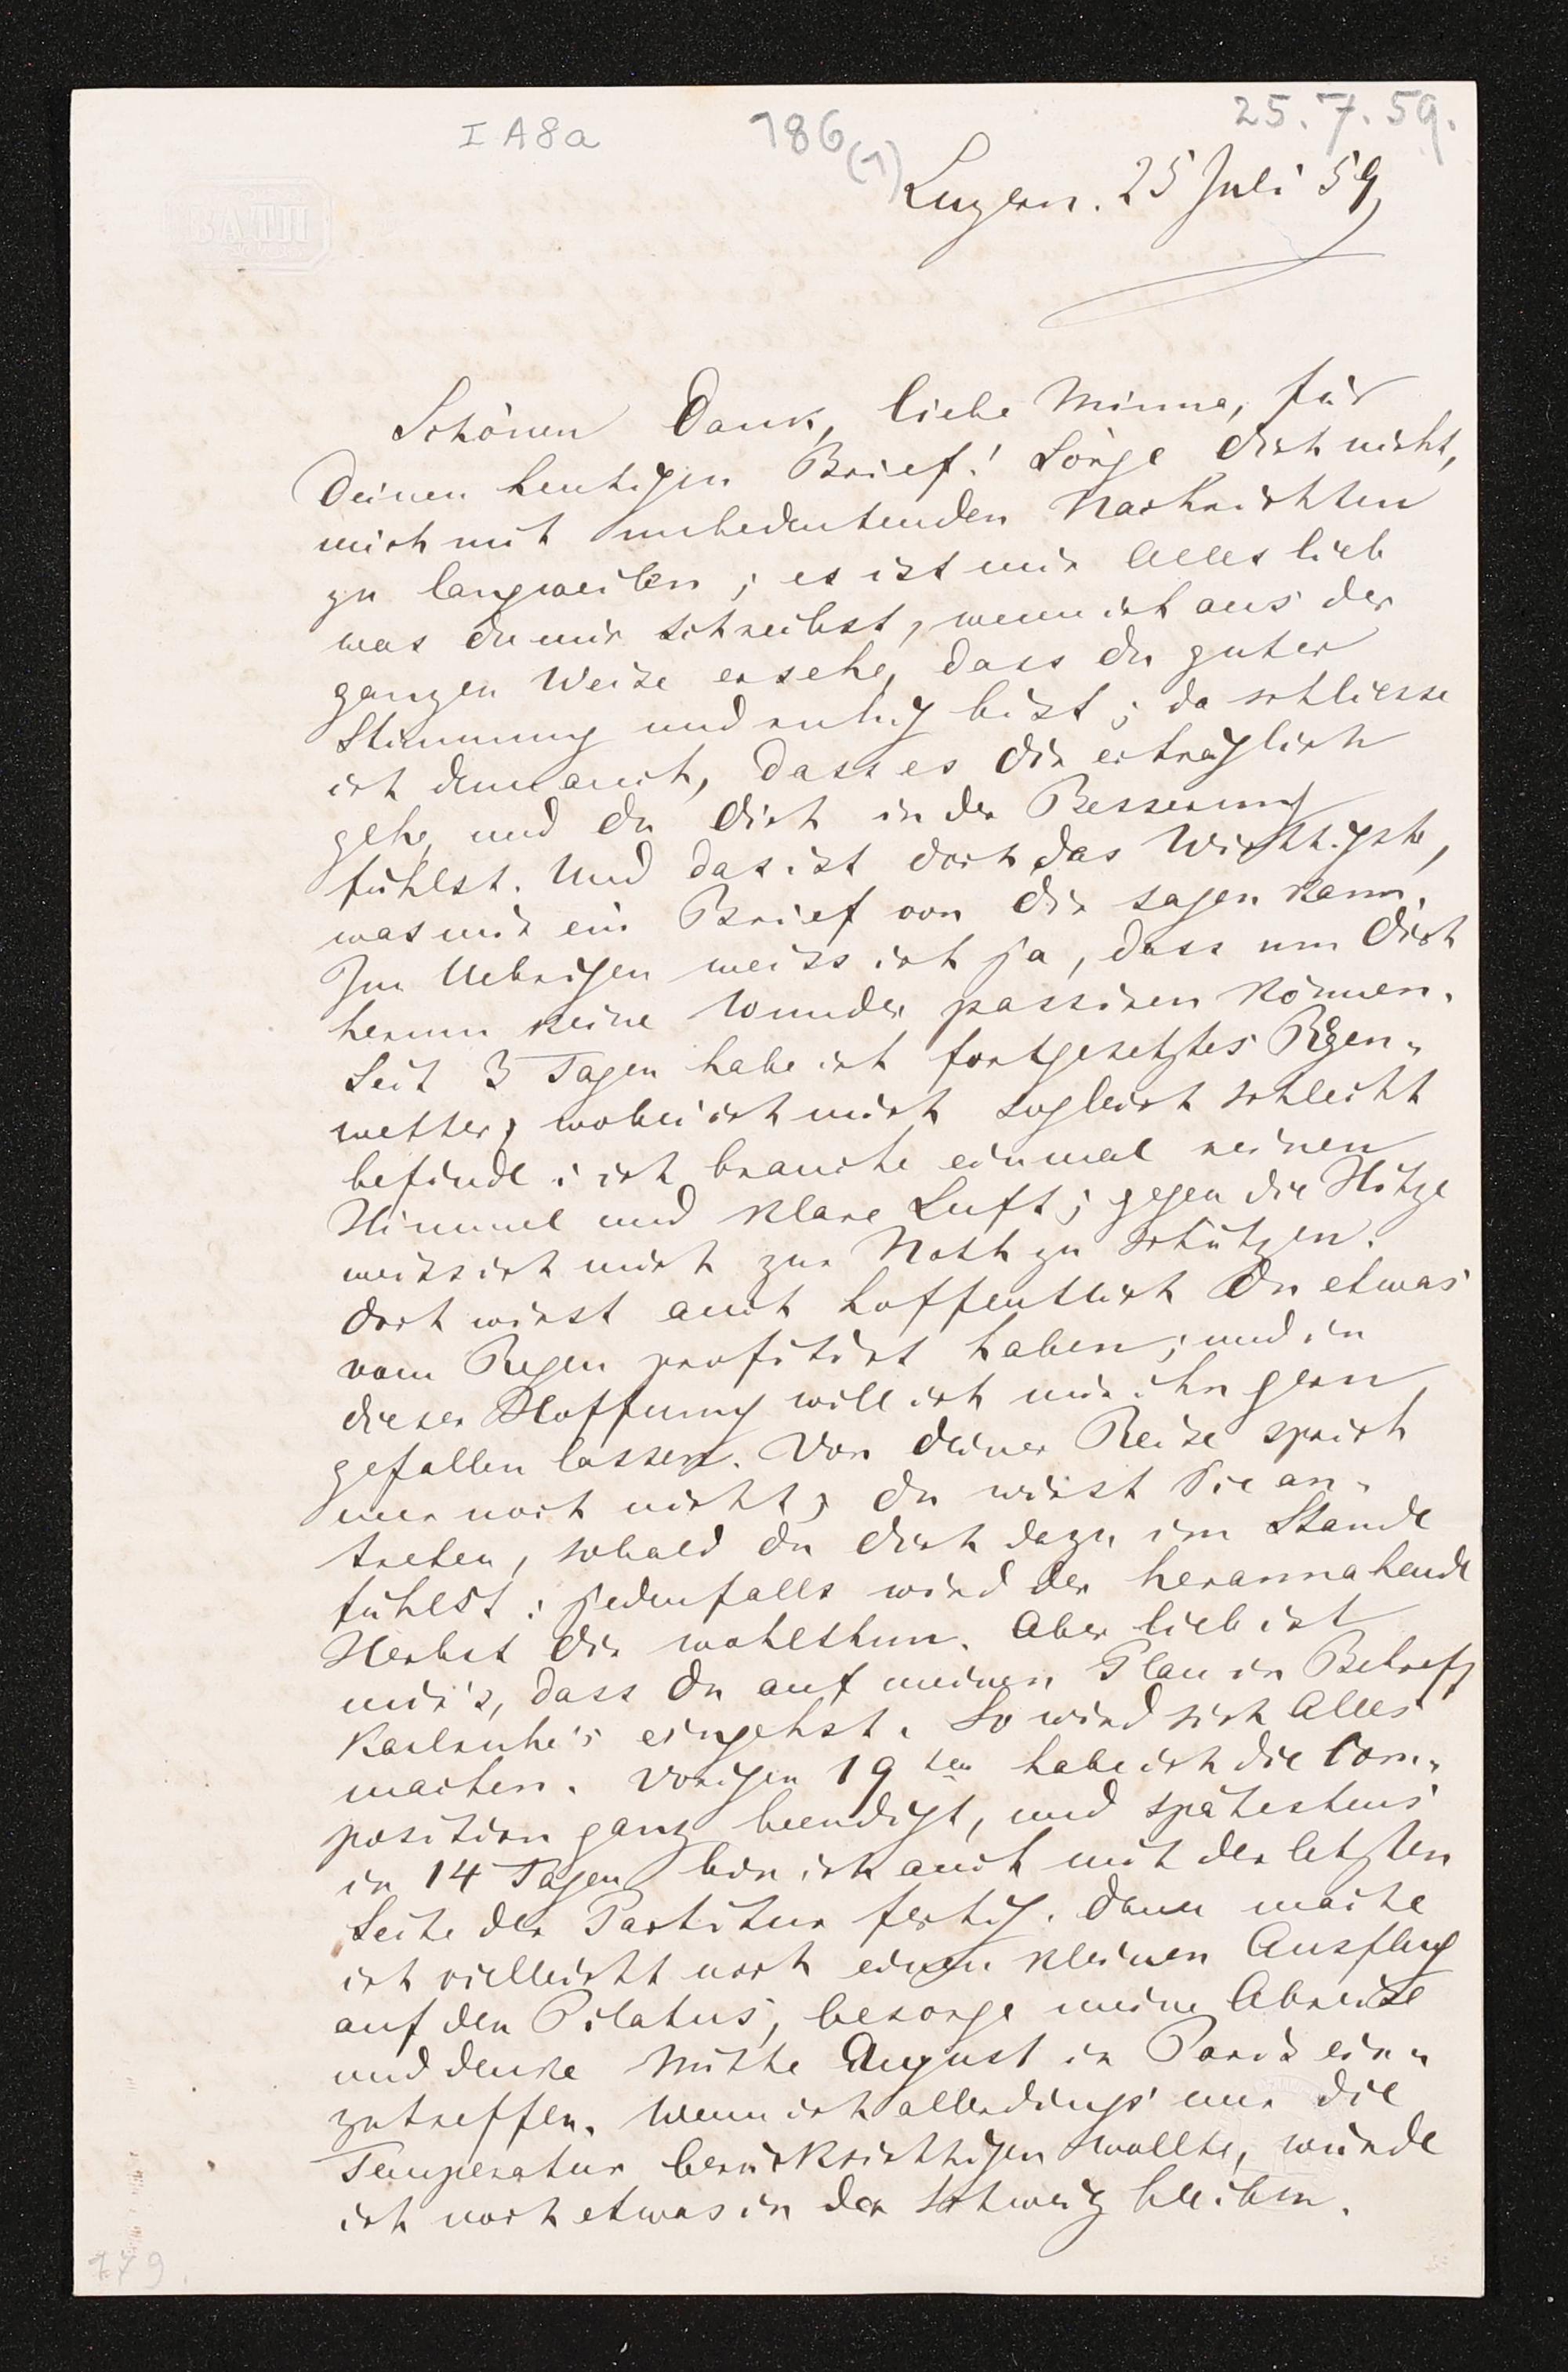 I A 8a
186
(1)
25. 7. 59.
BATH
Luzern. 25 Juli 59
Schönen Dank, liebe Minna, für
Deinen heutigen Brief! Sorge Dich nicht,
mich mit unbedeutenden Nachrichten
zu langweilen; es ist mir Alles lieb
was du mir schreibst, wenn ich aus der
ganzen Weise ersehe, dass du guter
Stimmung und ruhig bist; da schliesse
ich denn auch, dass es Dir erträglich
gehe, und du Dich in der Besserung
fühlst. Und das ist doch das Wichtigste,
was mir ein Brief von Dir sagen kann.
Im Uebrigen weiss ich ja, dass um Dich
herum keine Wunder passiren können.
Seit 3 Tagen habe ich fortgesetztes Regen-
wetter, wobei ich mich sogleich schlecht
befinde: ich brauche einmal reinen
Himmel und klare Luft; gegen die Hitze
weiss ich mich zur Noth zu schützen.
Doch wirst auch hoffentlich Du etwas
vom Regen profitirt haben; und in
dieser Hoffnung will ich mir ihn gern
gefallen lassen. Von deiner Reise sprich
nur noch nicht; du wirst sie an-
treten, sobald du Dich dazu im Stande
fühlst: jedenfalls wird der herannahende
Herbst Dir wohlthun. Aber lieb ist
mir's, dass Du auf meinen Plan in Betreff
Karlsruhe's eingehst. So wird sich Alles
machen. Vorigen 19ten habe ich die Com-
position ganz beendigt, und spätestens
in 14 Tagen bin ich auch mit der letzten
Seite der Partitur fertig. Dann mache
ich vielleicht noch einen kleinen Ausflug
auf den Pilatus, besorge meine Abreise
und denke Mitte August in Paris ein-
zutreffen. Wenn ich allerdings nur die
Temperatur berücksichtigen wollte, würde
ich noch etwas in der Schweiz bleiben.
179.